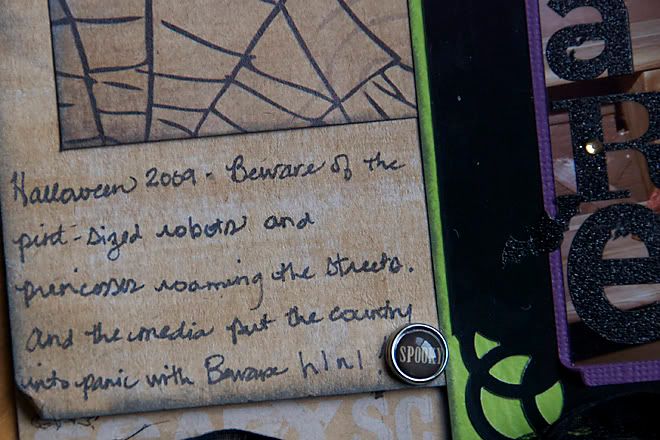 Halloween 2009 - Beware of the
pint-sized robots and
princesses roaming the streets.
And the media put the country
into panic with Beware h1n1!
SPOOKY
a
R
e